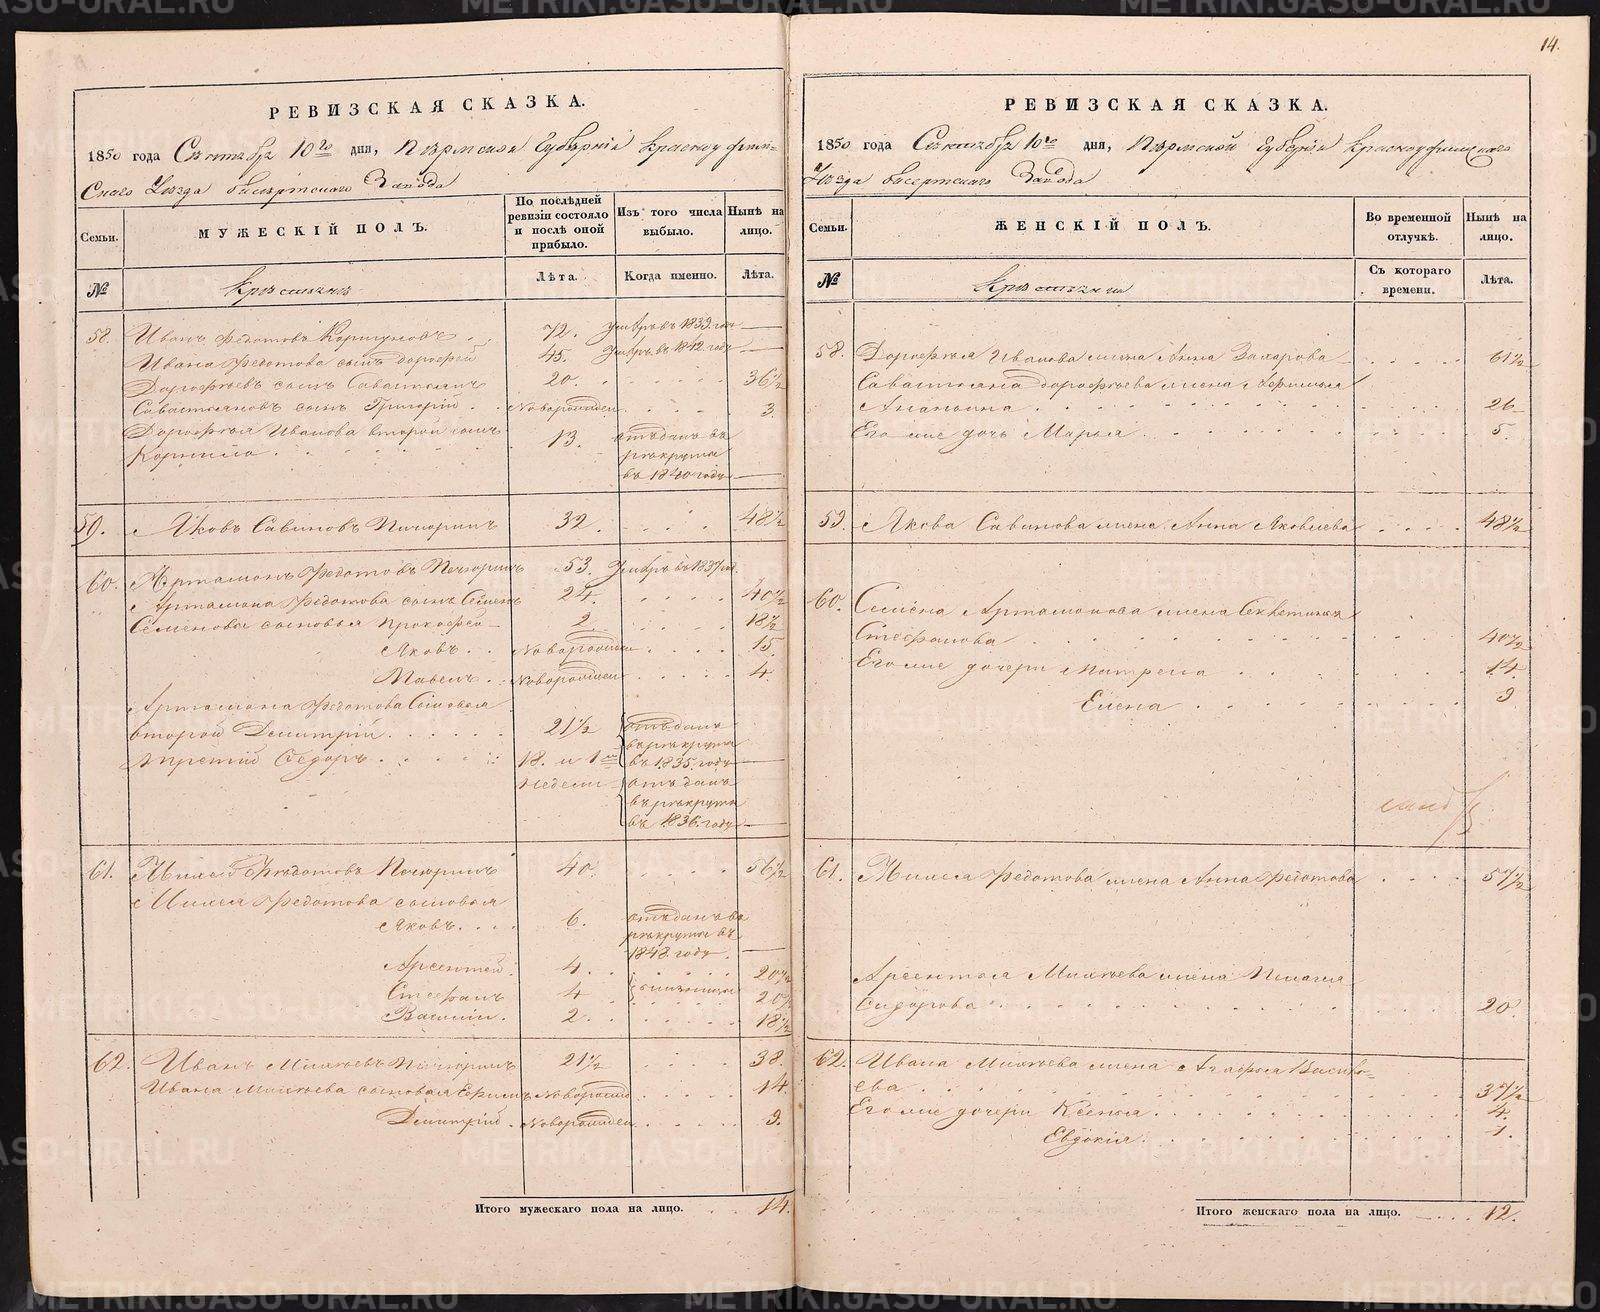 14.
РЕВИЗСКАЯ СКАЗКА.
1850 года Сентября 10го дня, Пермской Губерніи Красноуфим-
скаго Уезда Бисертскаго Завода
Семьи.
МУЖЕСКІЙ ПОЛЪ.
По послѣдней ревизіи состояло и послѣ оной прибыло.
Изъ того числа выбыло.
Нынѣ на лицо.
№
Крестьяне
Лѣта.
Когда именно.
Лѣта.
58. Иванъ Федотовъ Коршуновъ 72. Умеръ въ 1839 году —
Ивана Федотова сынъ Дорофей 45. Умеръ въ 1842 году —
Дорофеевъ сынъ Савастьянъ 20. 36½
Савастьяновъ сынъ Григорій Новорожден 3
Дорофея Иванова второй сынъ
Корнило 13. отданъ въ
рекруты
въ 1840 году —
59. Яковъ Савиновъ Печоринъ 32. 48½
60. Артамонъ Федотовъ Печоринъ 53. Умеръ въ 1837 год.
Артамона Федотова сынъ Семенъ 24. 40½
Семеновы сыновья Прокофей 2 18½
Яковъ Новорожден 15.
Павелъ Новорожден 4.
Артамона Федотова Сыновья
второй Дмитрій 21½ отданъ
в рекруты
въ 1835 году —
третій Федоръ 18. и 1
недели отданъ
в рекруты
въ 1836 году —
61. Михей Федотовъ Печоринъ 40. 56½
Михея Федотова сыновья
Яковъ 6. отданъ въ
рекруты въ
1848 году. —
Арсентей 4. 20½
Стефанъ 4 близнецы 20½
Василій 2. 18½
62. Иванъ Михеевъ Печоринъ 21½ 38.
Ивана Михеева сыновья Ефимъ Новорожд 14.
Дмитрій Новорожден 9.
Итого мужескаго пола на лицо. 14.
РЕВИЗСКАЯ СКАЗКА.
1850 года Сентября 10го дня, Пермской Губерніи Красноуфимскаго
Уезда Бисертскаго Завода
Семьи.
ЖЕНСКІЙ ПОЛЪ.
Во временной отлучкѣ.
Нынѣ на лицо.
№
Крестьяне
Съ котораго времени.
Лѣта.
58. Дорофея Иванова жена Анна Захарова 61½
Савастьяна Дорофеева жена Афимья
Ананьина 26
Его же дочь Марья 5.
59. Якова Савинова жена Анна Яковлева 48½
60. Семена Артамонова жена
Стефанова 40½
Его же дочери Матрена 14.
Елена 9
61. Михея Федотова жена Анна Федотова 57½
Арсентья Михеева жена Пелагея
Сидорова 20.
62. Ивана Михеева жена Агафья Василь-
ева 37½
Его же дочери Ксенья 4.
Евдокія 1.
Итого женскаго пола на лицо. 12.
METRIKI.GASO-URAL.RU